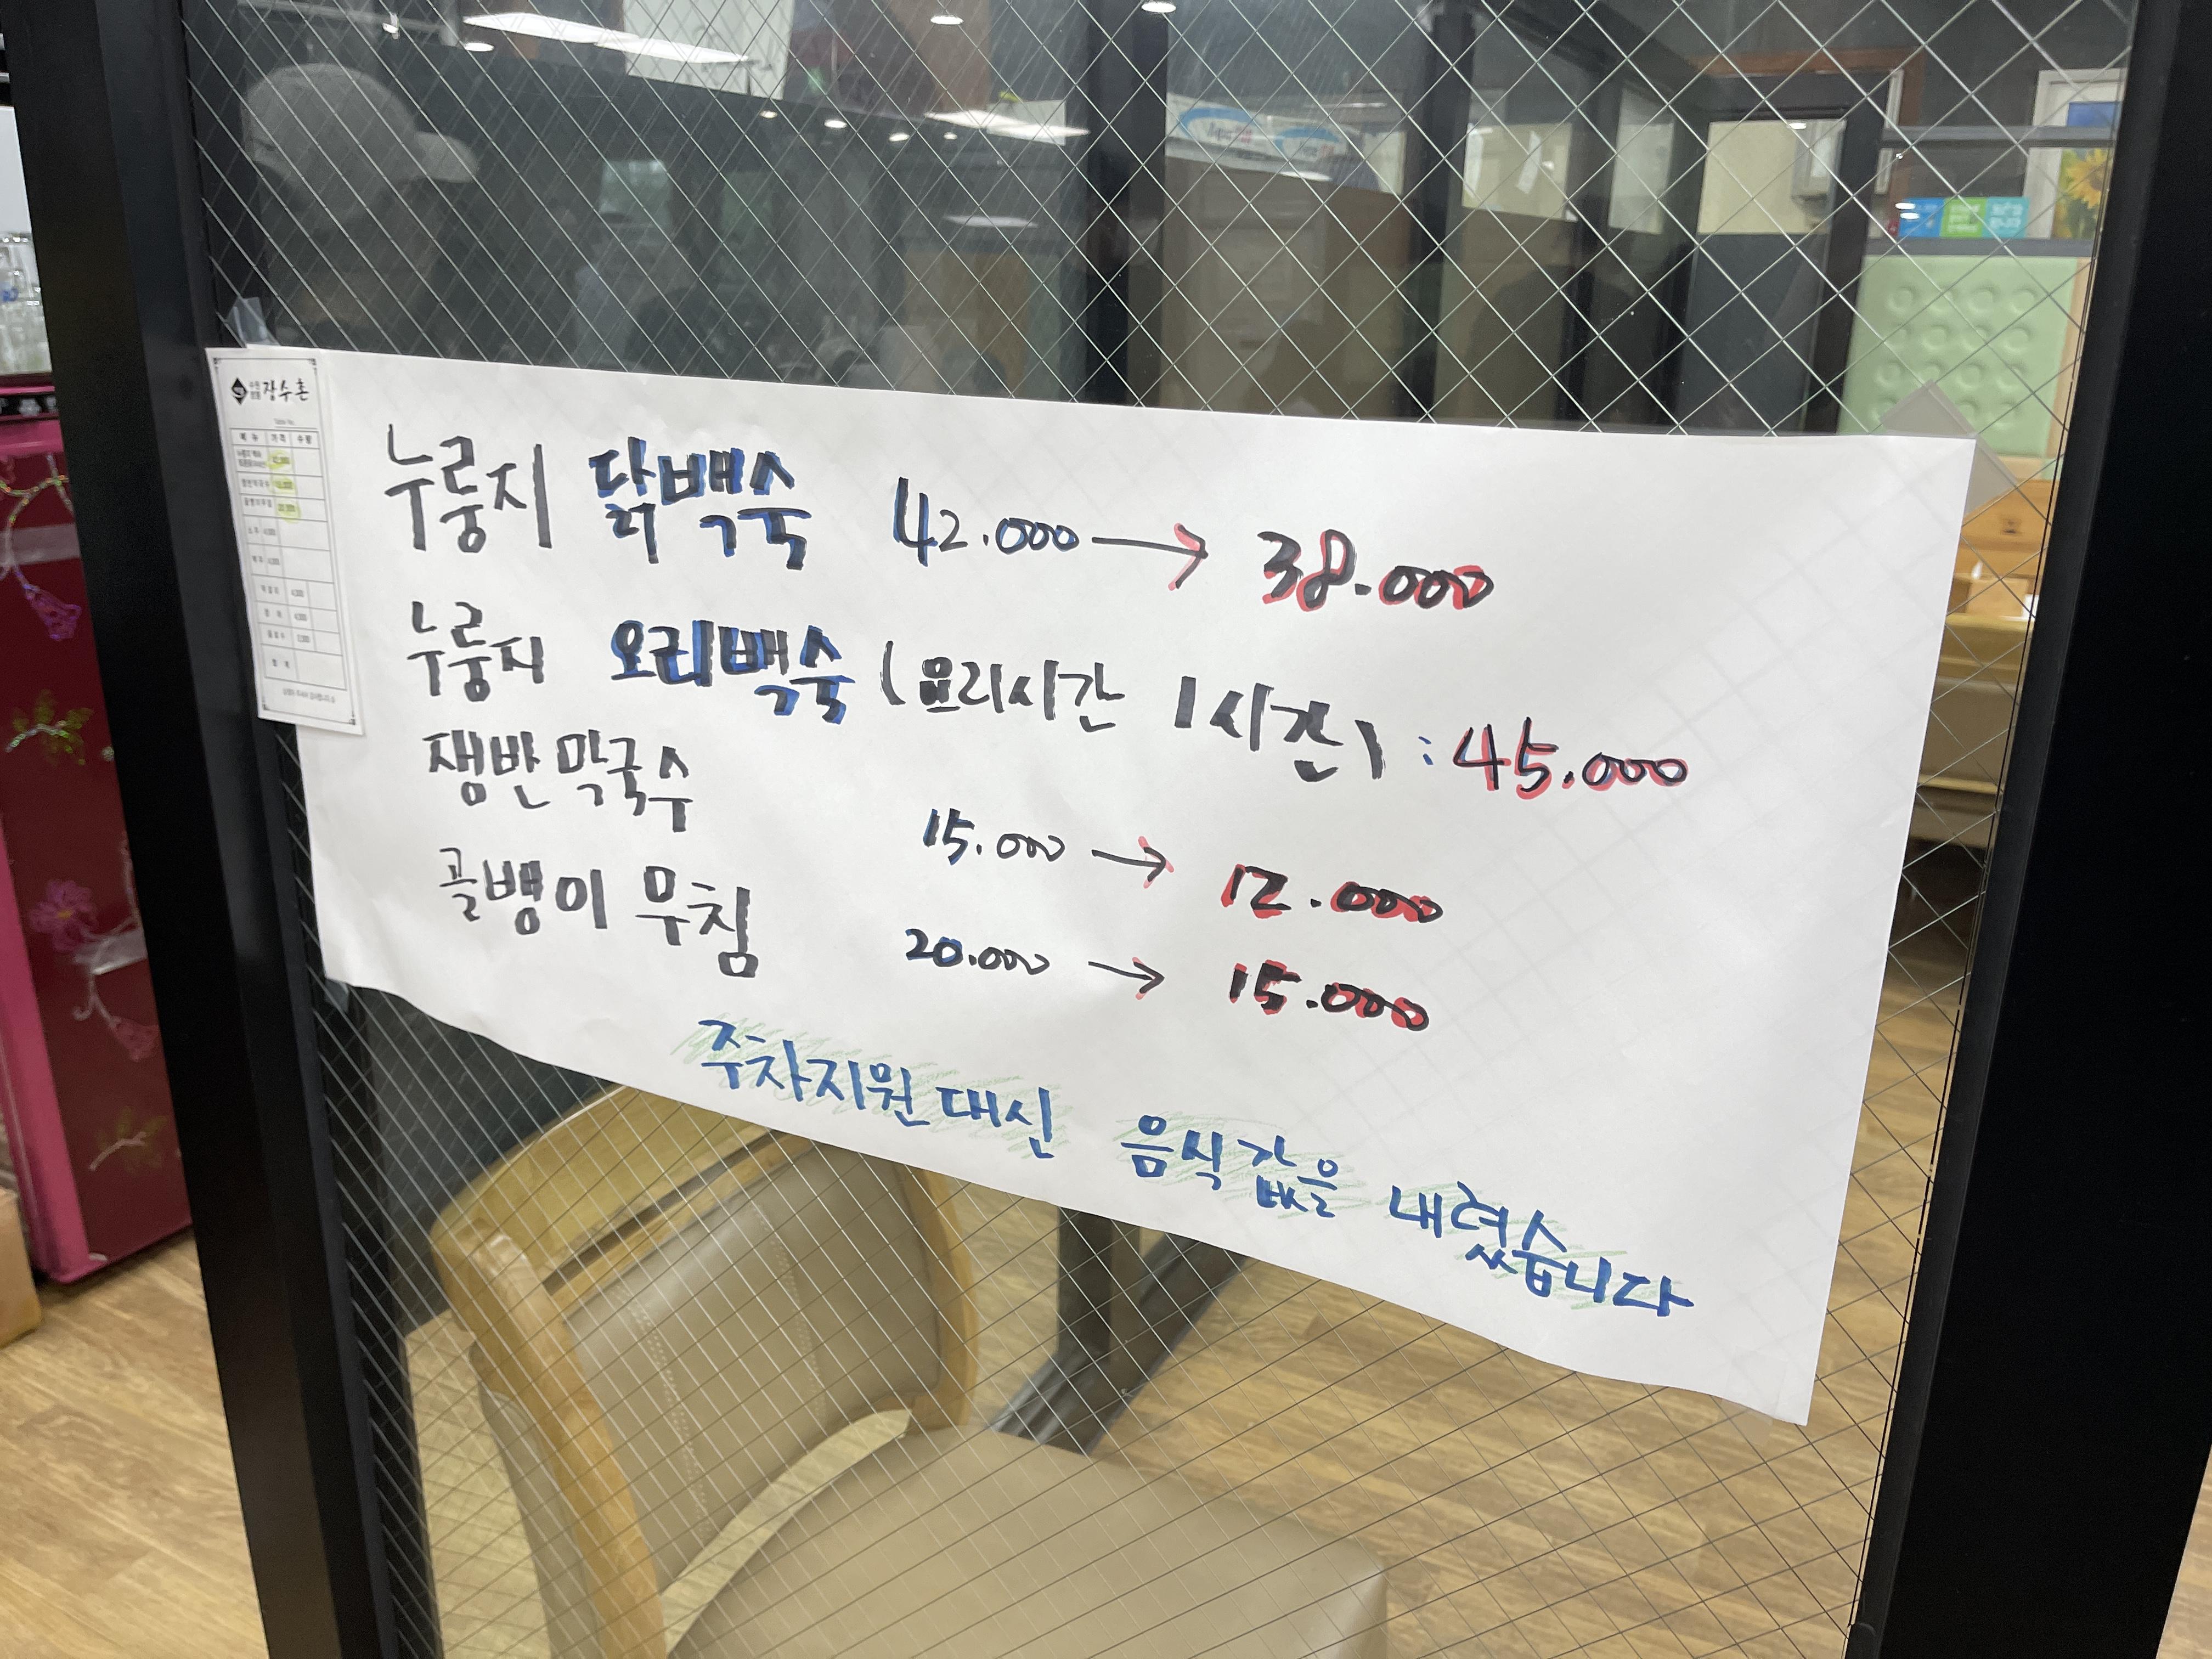 장수촌
메뉴 가격 수량
누룽지 닭백숙 42.000 → 38.000
누룽지 오리백숙 (요리시간 1시간) : 45.000
쟁반 막국수 15.000 → 12.000
골뱅이 무침 20.000 → 15.000
주차지원 대신 음식값을 내렸습니다